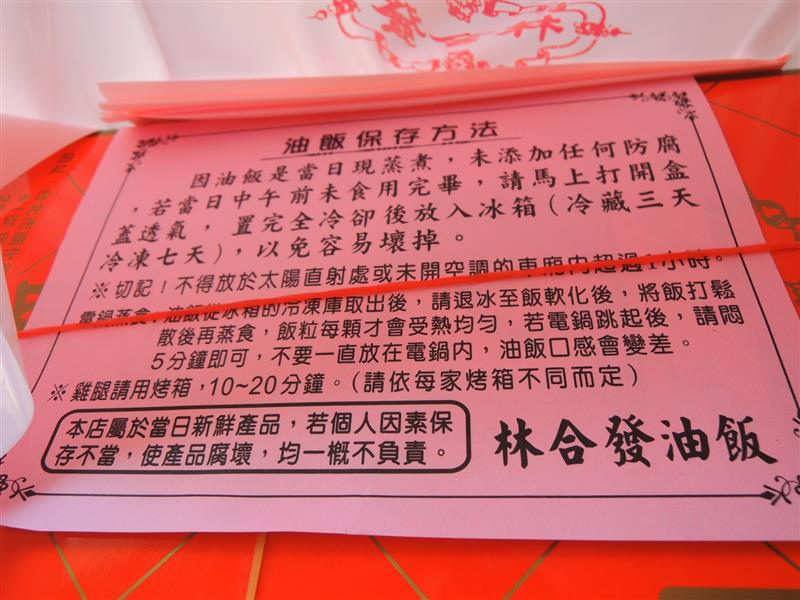 油飯保存方法
因油飯是當日現蒸煮，未添加任何防腐
，若當日中午前未食用完畢，請馬上打開盒
蓋透氣，置完全冷卻後放入冰箱(冷藏三天
冷凍七天)，以免容易壞掉。
※切記！不得放於太陽直射處或未開空調的車廂內超過1小時。
電鍋蒸食：油飯從冰箱的冷凍庫取出後，請退冰至飯軟化後，將飯打鬆
散後再蒸食，飯粒每顆才會受熱均勻，若電鍋跳起後，請悶
5分鐘即可，不要一直放在電鍋內，油飯口感會變差。
※雞腿請用烤箱，10~20分鐘。(請依每家烤箱不同而定)
本店屬於當日新鮮產品，若個人因素保
存不當，使產品腐壞，均一概不負責。
林合發油飯